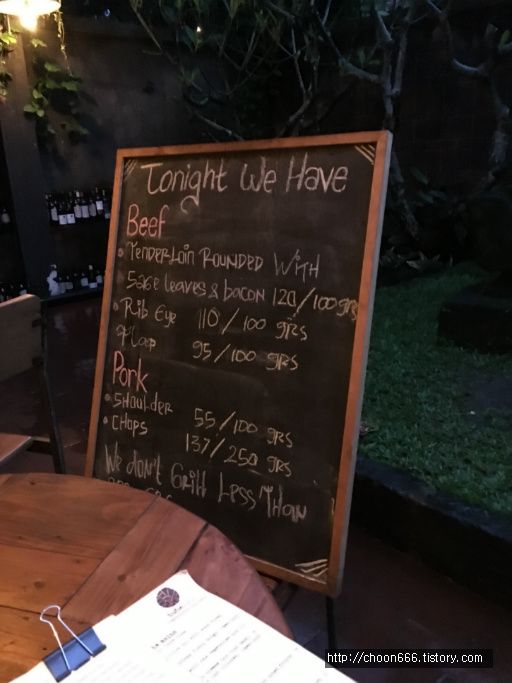 Tonight We Have
Beef
• Tenderloin Rounded With
Sage leaves & bacon 120/100 grs
• Rib Eye 110/100 grs
• Flap 95/100 grs
Pork
• Shoulder 55/100 grs
• Chops 137/250 grs
We don't Grill Less Than
http://choon666.tistory.com